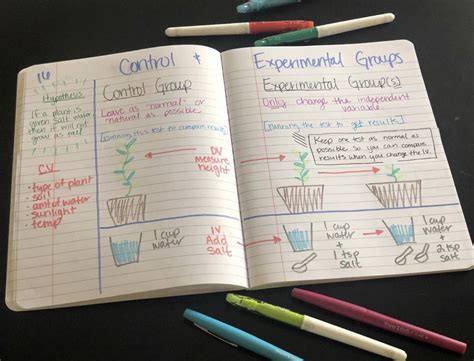 16
Control +
Experimental Groups
Hypothesis
If a plant is
given salt water
then it will not
grow as tall.
CV
• type of plant
• soil
• amt of water
• sunlight
• temp
Control Group
Leave as "normal" or
natural as possible
(running this test to compare results)
DV
measure
height
1 cup
water
IV
Add
salt
Experimental Group(s)
Only change the independent
variable
(running the test to get results)
Keep one test as normal as
possible so you can compare
results when you change the IV.
1 cup
water
+
1 tsp
salt
1 cup
water
+
2 tsp
salt